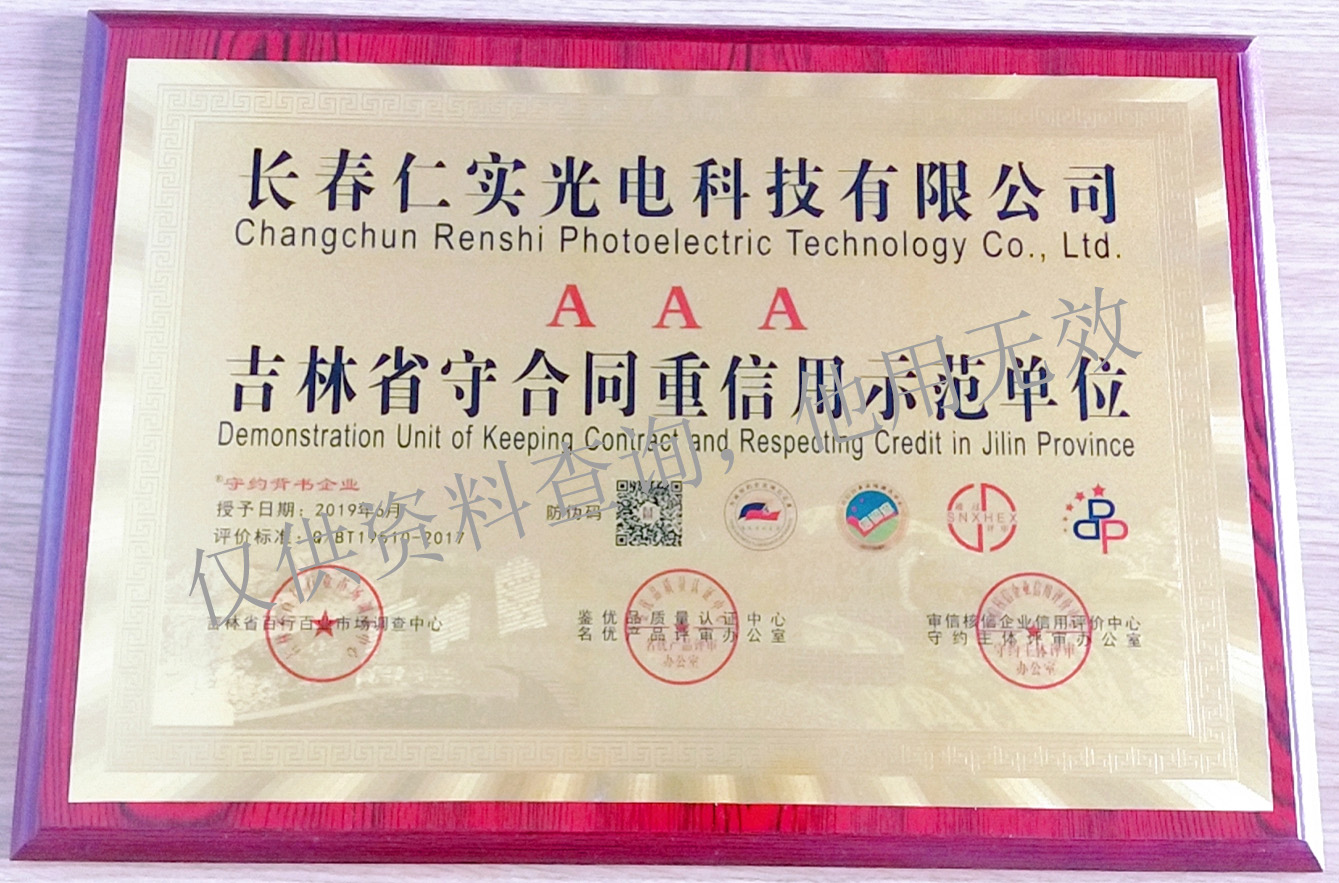 长春仁实光电科技有限公司
Changchun Renshi Photoelectric Technology Co., Ltd.
A A A
吉林省守合同重信用示范单位
Demonstration Unit of Keeping Contract and Respecting Credit in Jilin Province
®守约背书企业
授予日期：2019年6月
评价标准：Q/BT19510-2017
防伪码
通过
SNXHEX
评审
吉林省百行百业市场调查中心
鉴优品质量认证中心
名优产品评审办公室
审信核信企业信用评价中心
守约主体评审办公室
仅供资料查询，他用无效